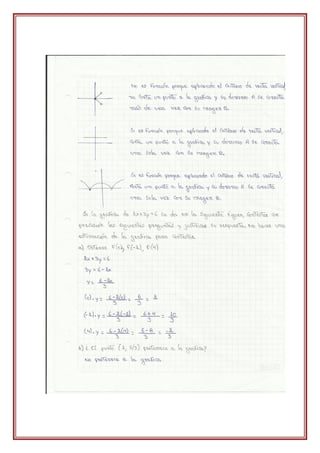 no es función porque aplicando el criterio de recta vertical
no corta un punto a la grafica y su dominio A se conecta
más de una vez con su rango B.
Si es función porque aplicando el criterio de recta vertical,
corta un punto a la grafica y su dominio A se conecta
una sola vez con su rango B.
Si es función porque aplicando el criterio de recta vertical,
corta un punto a la grafica y su dominio A se conecta
una sola vez con su rango B.
Si la grafica de 2x+3y=6 se da en la siguiente figura, contesta
las siguientes preguntas y justifica su respuesta, en base una
de la grafica para contestar.
a) Obtener f(0), f(-2), f(4)
2x+3y=6
3y=6-2x
y= 6-2x / 3
(0).y= 6-2(0) / 3 = 6 / 3 = 2
(-2).y= 6-2(-2) / 3 = 6+4 / 3 = 10 / 3
(4).y= 6-2(4) / 3 = 6-8 / 3 = -2 / 3
b) ¿El punto (2, 2/3) pertenece a la grafica?
no pertenece a la grafica